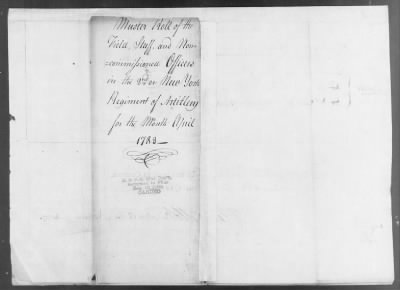 Muster Roll of the
Field, Staff, and Non
-commissioned Officers
in the 2d or New York
Regiment of Artillery
for the Month April
1783